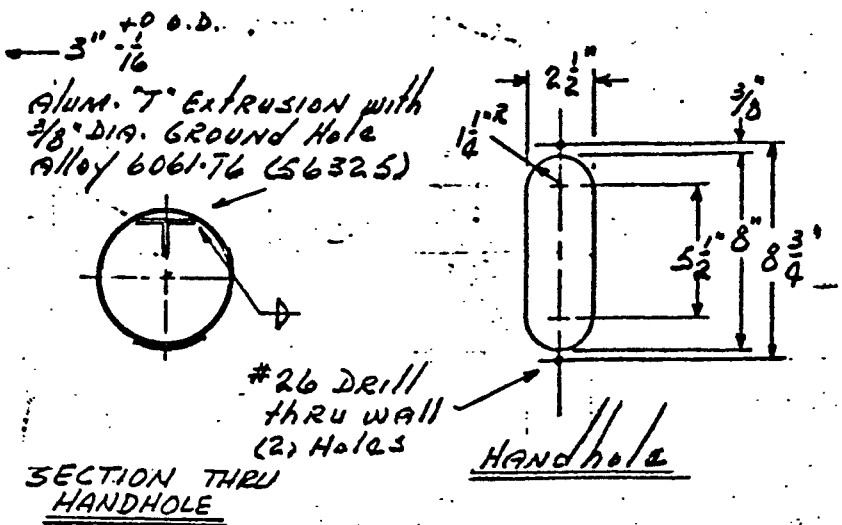 3" +0 -1/16 O.D.
Alum. "T" Extrusion with
3/8" DIA. GROUND Hole
Alloy 6061-T6 (56325)
2 1/2"
3/8"
1 1/4" R
5 1/2"
8"
8 3/4"
#26 DRILL
thRU WALL
(2) Holes
SECTION THRU
HANDHOLE
HANDhole